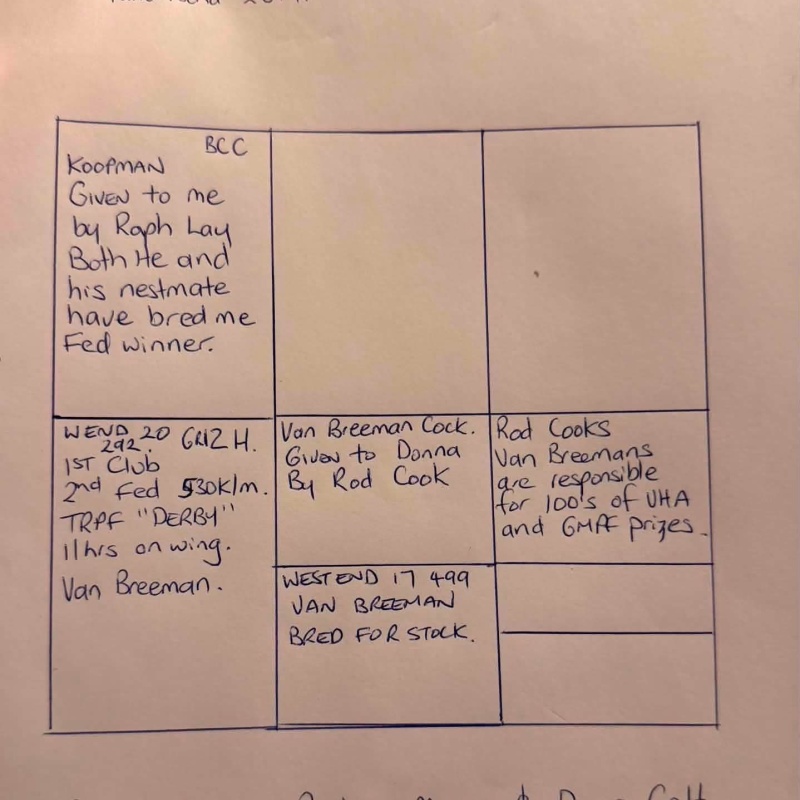 BCC
KOOPMAN
GIVEN to me
by Raph Lay
Both He and
his nestmate
have bred me
Fed winner.
WEND 20 GRIZ H.
292.
1ST Club
2nd Fed 530K/m.
TRPF "DERBY"
11hrs on wing.
Van Breeman.
Van Breeman Cock.
GIVEN to Donna
By Rod Cook
Rod Cooks
Van Breemans
are responsible
for 100's of VHA
and GMPF prizes.
WEST END 17 499
VAN BREEMAN
BRED FOR STOCK.